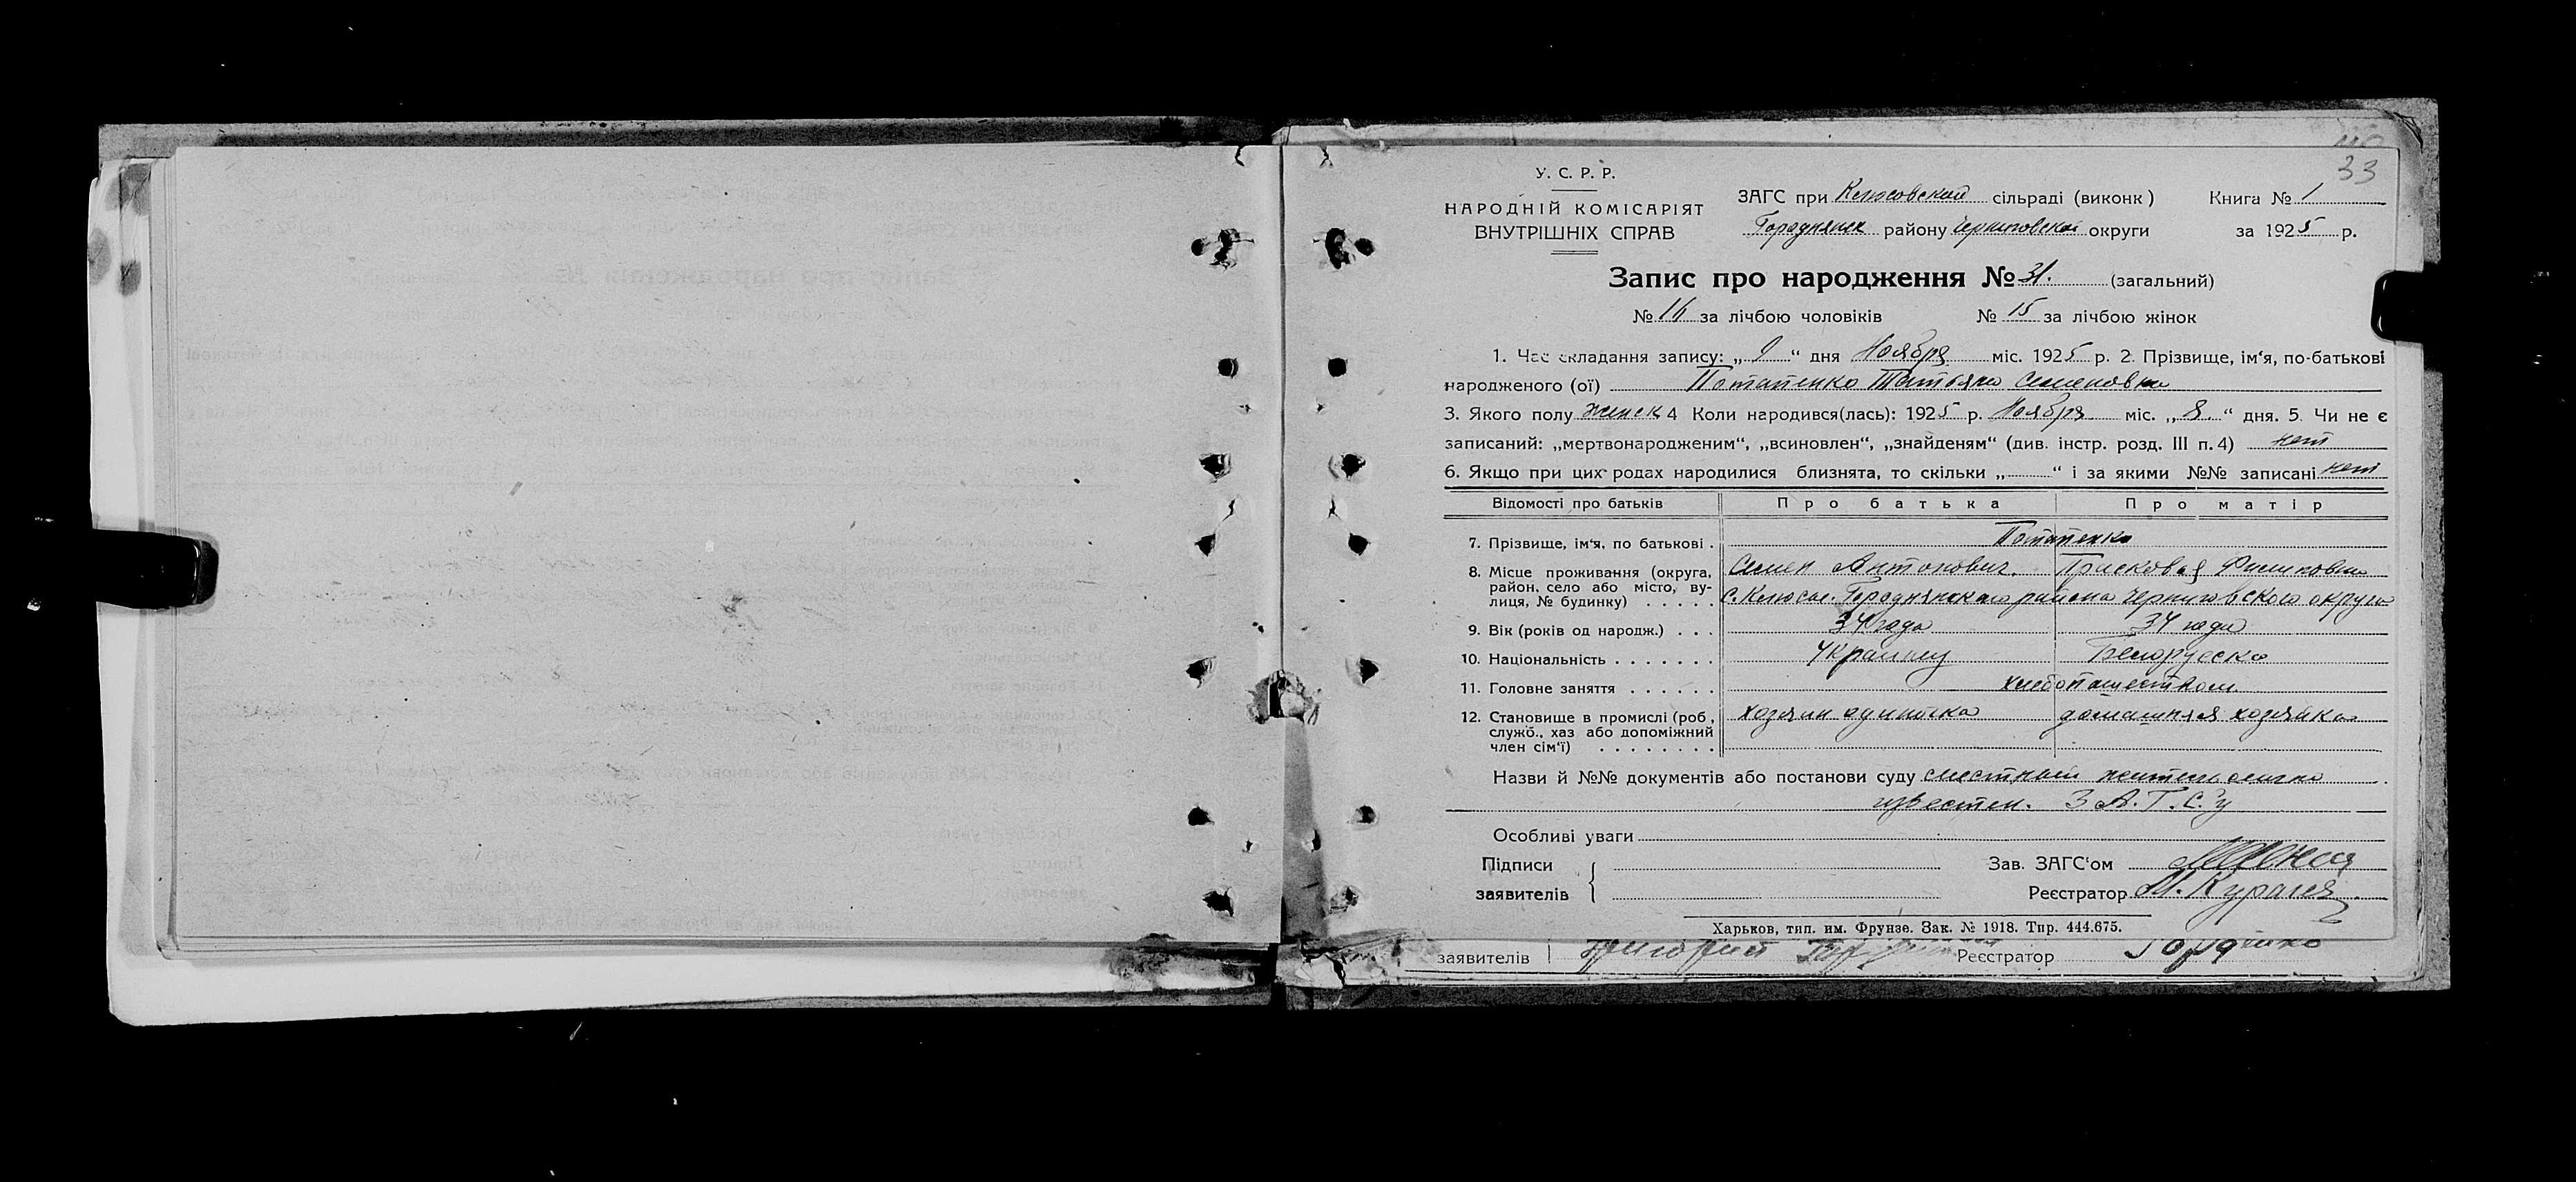 33
У. С. Р. Р.
НАРОДНІЙ КОМІСАРІЯТ
ВНУТРІШНІХ СПРАВ
ЗАГС при Клюсовской сільраді (виконк)
Городнянск району Черниговской округи
Книга № 1
за 1925 р.
Запис про народження № 31. (загальний)
№ 16 за лічбою чоловіків № 15 за лічбою жінок
1. Час складання запису: „9“ дня Ноября міс. 1925 р. 2. Прізвище, ім‘я, по-батькові
народженого (ої) Потапенко Татьяна Семеновна
3. Якого полу женск 4 Коли народився(лась): 1925 р. Ноября міс. „8.“ дня. 5. Чи не є
записаний: „мертвонародженим“, „всиновлен“, „знайденям“ (див. інстр. розд. III п. 4) нет
6. Якщо при цих родах народилися близнята, то скільки „ “ і за якими №№ записані нет
Відомості про батьків Про батька Про матір
7. Прізвище, ім‘я, по батькові . Потапенко
Семен Антонович. Прасковья Филиповна
8. Місце проживання (округа,
район, село або місто, ву-
лиця, № будинку) . . . . .
с. Клюсы. Городнянского района Черниговского округа
9. Вік (років од народж.) . . . 34 года 34 года
10. Національність . . . . . . . Украинец Белорусска
11. Головне заняття . . . . . . хлебопашеством
12. Становище в промислі (роб.,
служб., хаз або допоміжний
член сім‘ї) . . . . . . . .
хозяин одиночка домашняя хозяйка
Назви й №№ документів або постанови суду местный житель лично
известен. ЗАГС‘у
Особливі уваги
Підписи
заявителів
Зав. ЗАГС‘ом
Реєстратор М.
Харьков, тип. им. Фрунзе. Зак. № 1918. Тир. 444.675.
заявителів Григорий Реєстратор